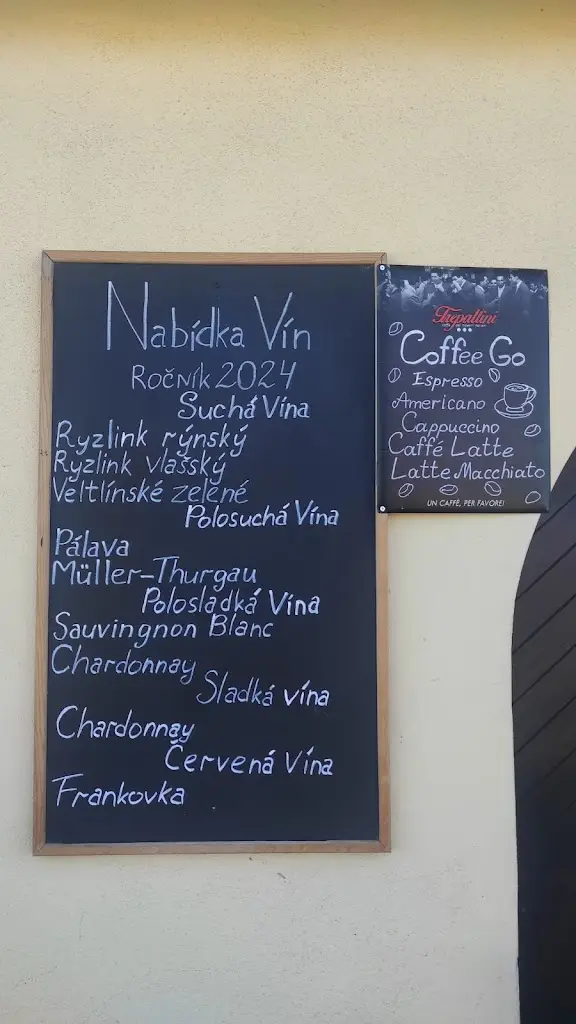 Nabídka Vín
Ročník 2024
Suchá Vína
Ryzlink rýnský
Ryzlink vlašský
Veltlínské zelené
Polosuchá Vína
Pálava
Müller-Thurgau
Polosladká Vína
Sauvingnon Blanc
Chardonnay
Sladká vína
Chardonnay
Červená Vína
Frankovka
Trepallini
Coffee Go
Espresso
Americano
Cappuccino
Caffé Latte
Latte Macchiato
UN CAFFÈ, PER FAVORE!